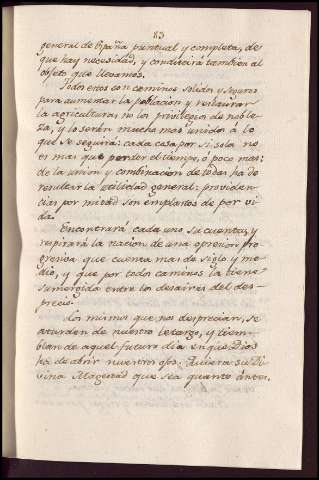 83
general de España puntual y completa, de
que hay necesidad, y conducirá tambien al
objeto que llevamos.
Todos estos son caminos solidos y seguros
para aumentar la poblacion y restaurar
la agricultura, no los privilegios de noble-
za, y lo serán mucho mas unidos á lo
que se seguirá: cada casa por si sola no
es mas que perder el tiempo, ó poco mas:
de la union y combinacion de todas ha de
resultar la utilidad general: providen-
cias por mitad son emplastos de por vi-
da.
Encontrará cada uno su cuenta, y
respirará la nacion de una opresion pro-
gresiva que cuenta mas de siglo y me-
dio, y que por todos caminos la tiene
sumergida entre los desaires del des-
precio.
Los mismos que nos desprecian, se
aturden de nuestro letargo, y tiem-
blan de aquel futuro dia en que Dios
ha de abrir nuestros ojos. Quiera su Di-
vina Magestad que sea quanto antes.